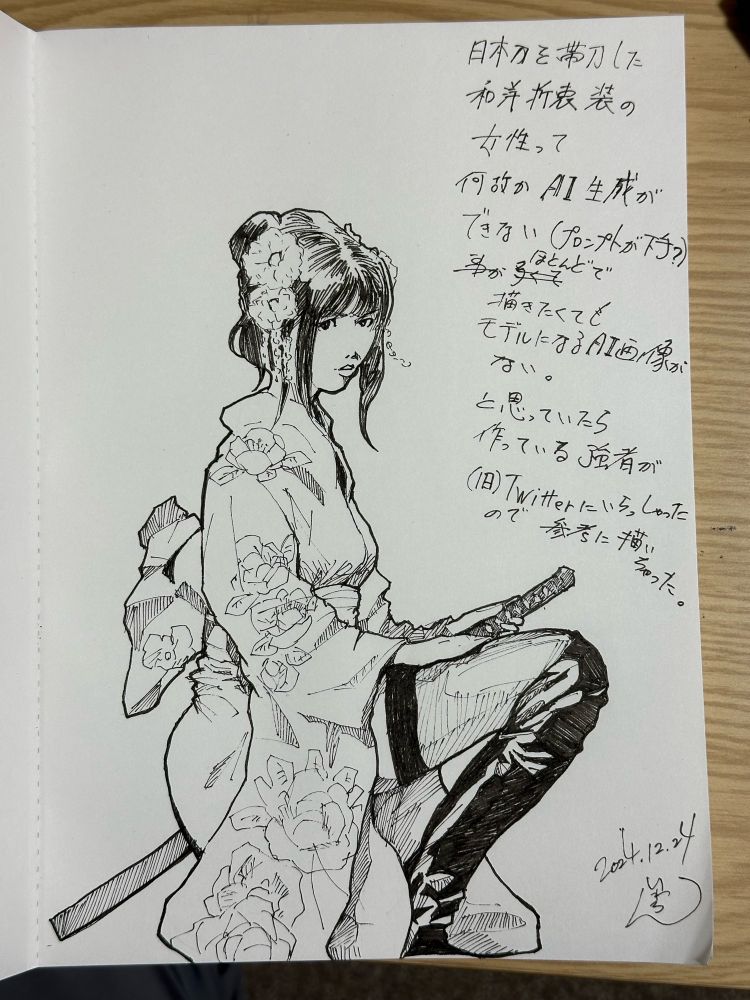 日本刀を帯刀した
和洋折衷装の
女性って
何故か AI生成が
できない(プロンプトが下手?)
事が ほとんどで
描きたくても
モデルになるAI画像が
ない。
と思っていたら
作っている強者が
(旧)Twitterにいらっしゃった
ので 参考に描い
ちゃった。
2024.12.24